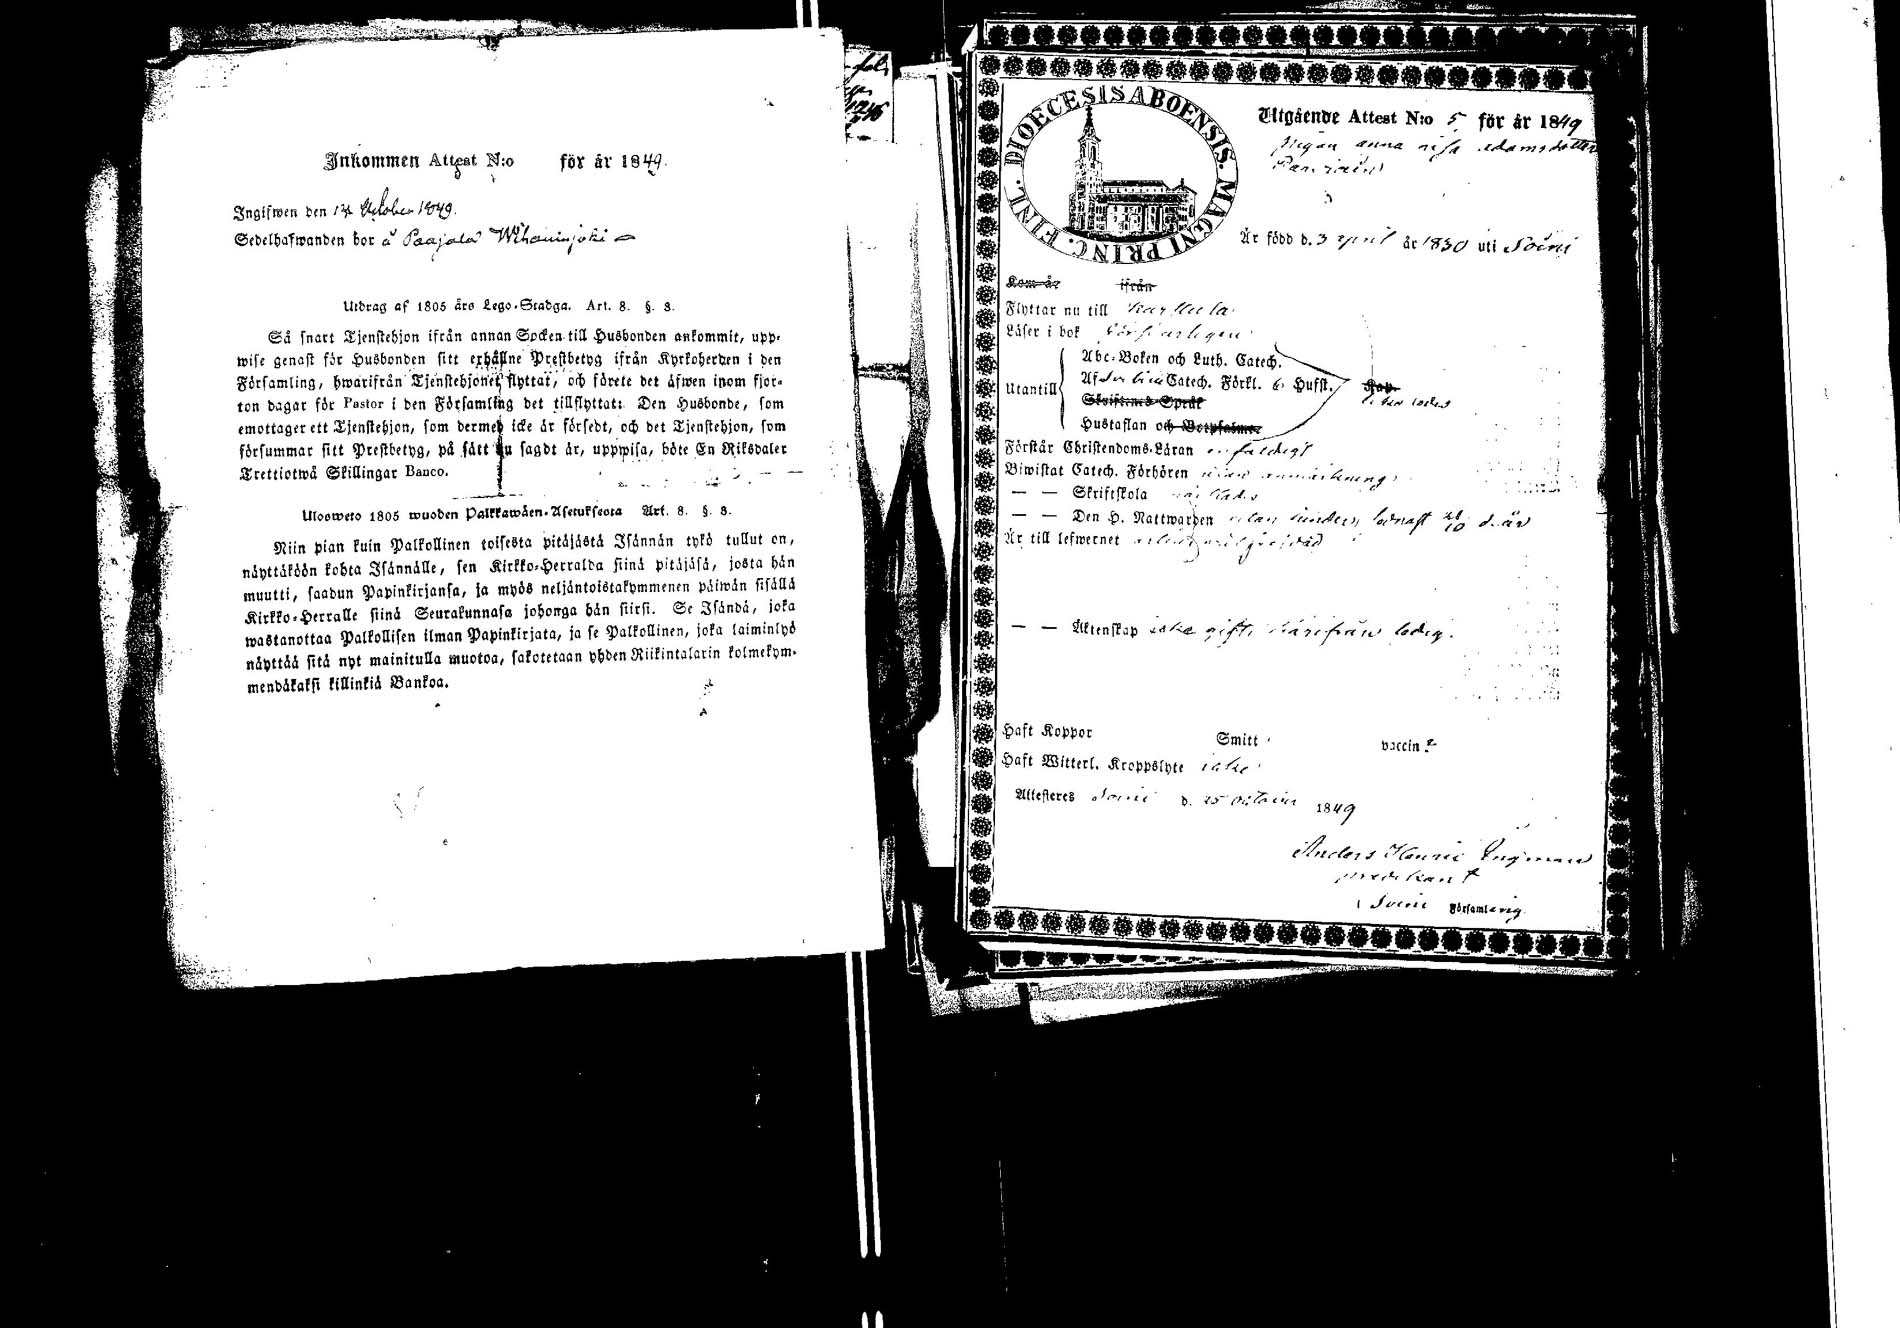 Inkommen Attest N:o för år 1849.
Ingifwen den October 1849.
Sedelhafwanden bor å Paajala Wihaninjoki
Utdrag af 1805 års Lego-Stadga. Art. 8. §. 8.
Så snart Tjenstehjon ifrån annan Socken till Husbonden ankommit, upp-
wise genast för Husbonden sitt erhållne Prestbetyg ifrån Kyrkoherden i den
Församling, hwarifrån Tjenstehjonet flyttat, och förete det äfwen inom fjor-
ton dagar för Pastor i den Församling det tillflyttat: Den Husbonde, som
emottager ett Tjenstehjon, som dermed icke är försedt, och det Tjenstehjon, som
försummar sitt Prestbetyg, på sätt nu sagdt är, uppwisa, böte En Riksdaler
Trettiotwå Skillingar Banco.
Ulosweto 1805 wuoden Palkkawäen-Asetuksesta Art. 8. §. 8.
Niin pian kuin Palkollinen toisesta pitäjästä Isännän tykö tullut on,
näyttäköön kohta Isännälle, sen Kirkko-Herralda siinä pitäjäsä, josta hän
muutti, saadun Papinkirjansa, ja myös neljäntoistakymmenen päiwän sisällä
Kirkko-Herralle siinä Seurakunnasa johonga hän siirsi. Se Isändä, joka
wastanottaa Palkollisen ilman Papinkirjata, ja se Palkollinen, joka laiminlyö
näyttää sitä nyt mainitulla muotoa, sakotetaan yhden Riikintalarin kolmekym-
mendäkaksi killinkiä Bankoa.
DIOECESIS ABOENSIS. MAGNI PRINC. FINL.
Utgående Attest N:o 5 för år 1849
pigan anna Adamsdotter
Är född d. 3 april år 1830 uti Soini
Kom år ifrån
Flyttar nu till Karstula
Läser i bok försvarligen
Utantill
Abc-Boken och Luth. Catech.
Af Catech. Förkl. 6 Hufst. Kap.
Skriftenes Språk
Hustaflan och Botpsalmer
Förstår Christendoms-Läran enfaldigt
Biwistat Catech. Förhören utan anmärkning
— — Skriftskola
— — Den H. Nattwarden utan hinder, sednast 21/10 d. år
Är till lefwernet
— — Äktenskap icke gift, härifrån ledig.
Haft Koppor Smitt vaccin
Haft Witterl. Kroppslyte icke
Attesteres Soini d. 25 October 1849
Anders Henric Ingman
predikant
i Soini Församling.